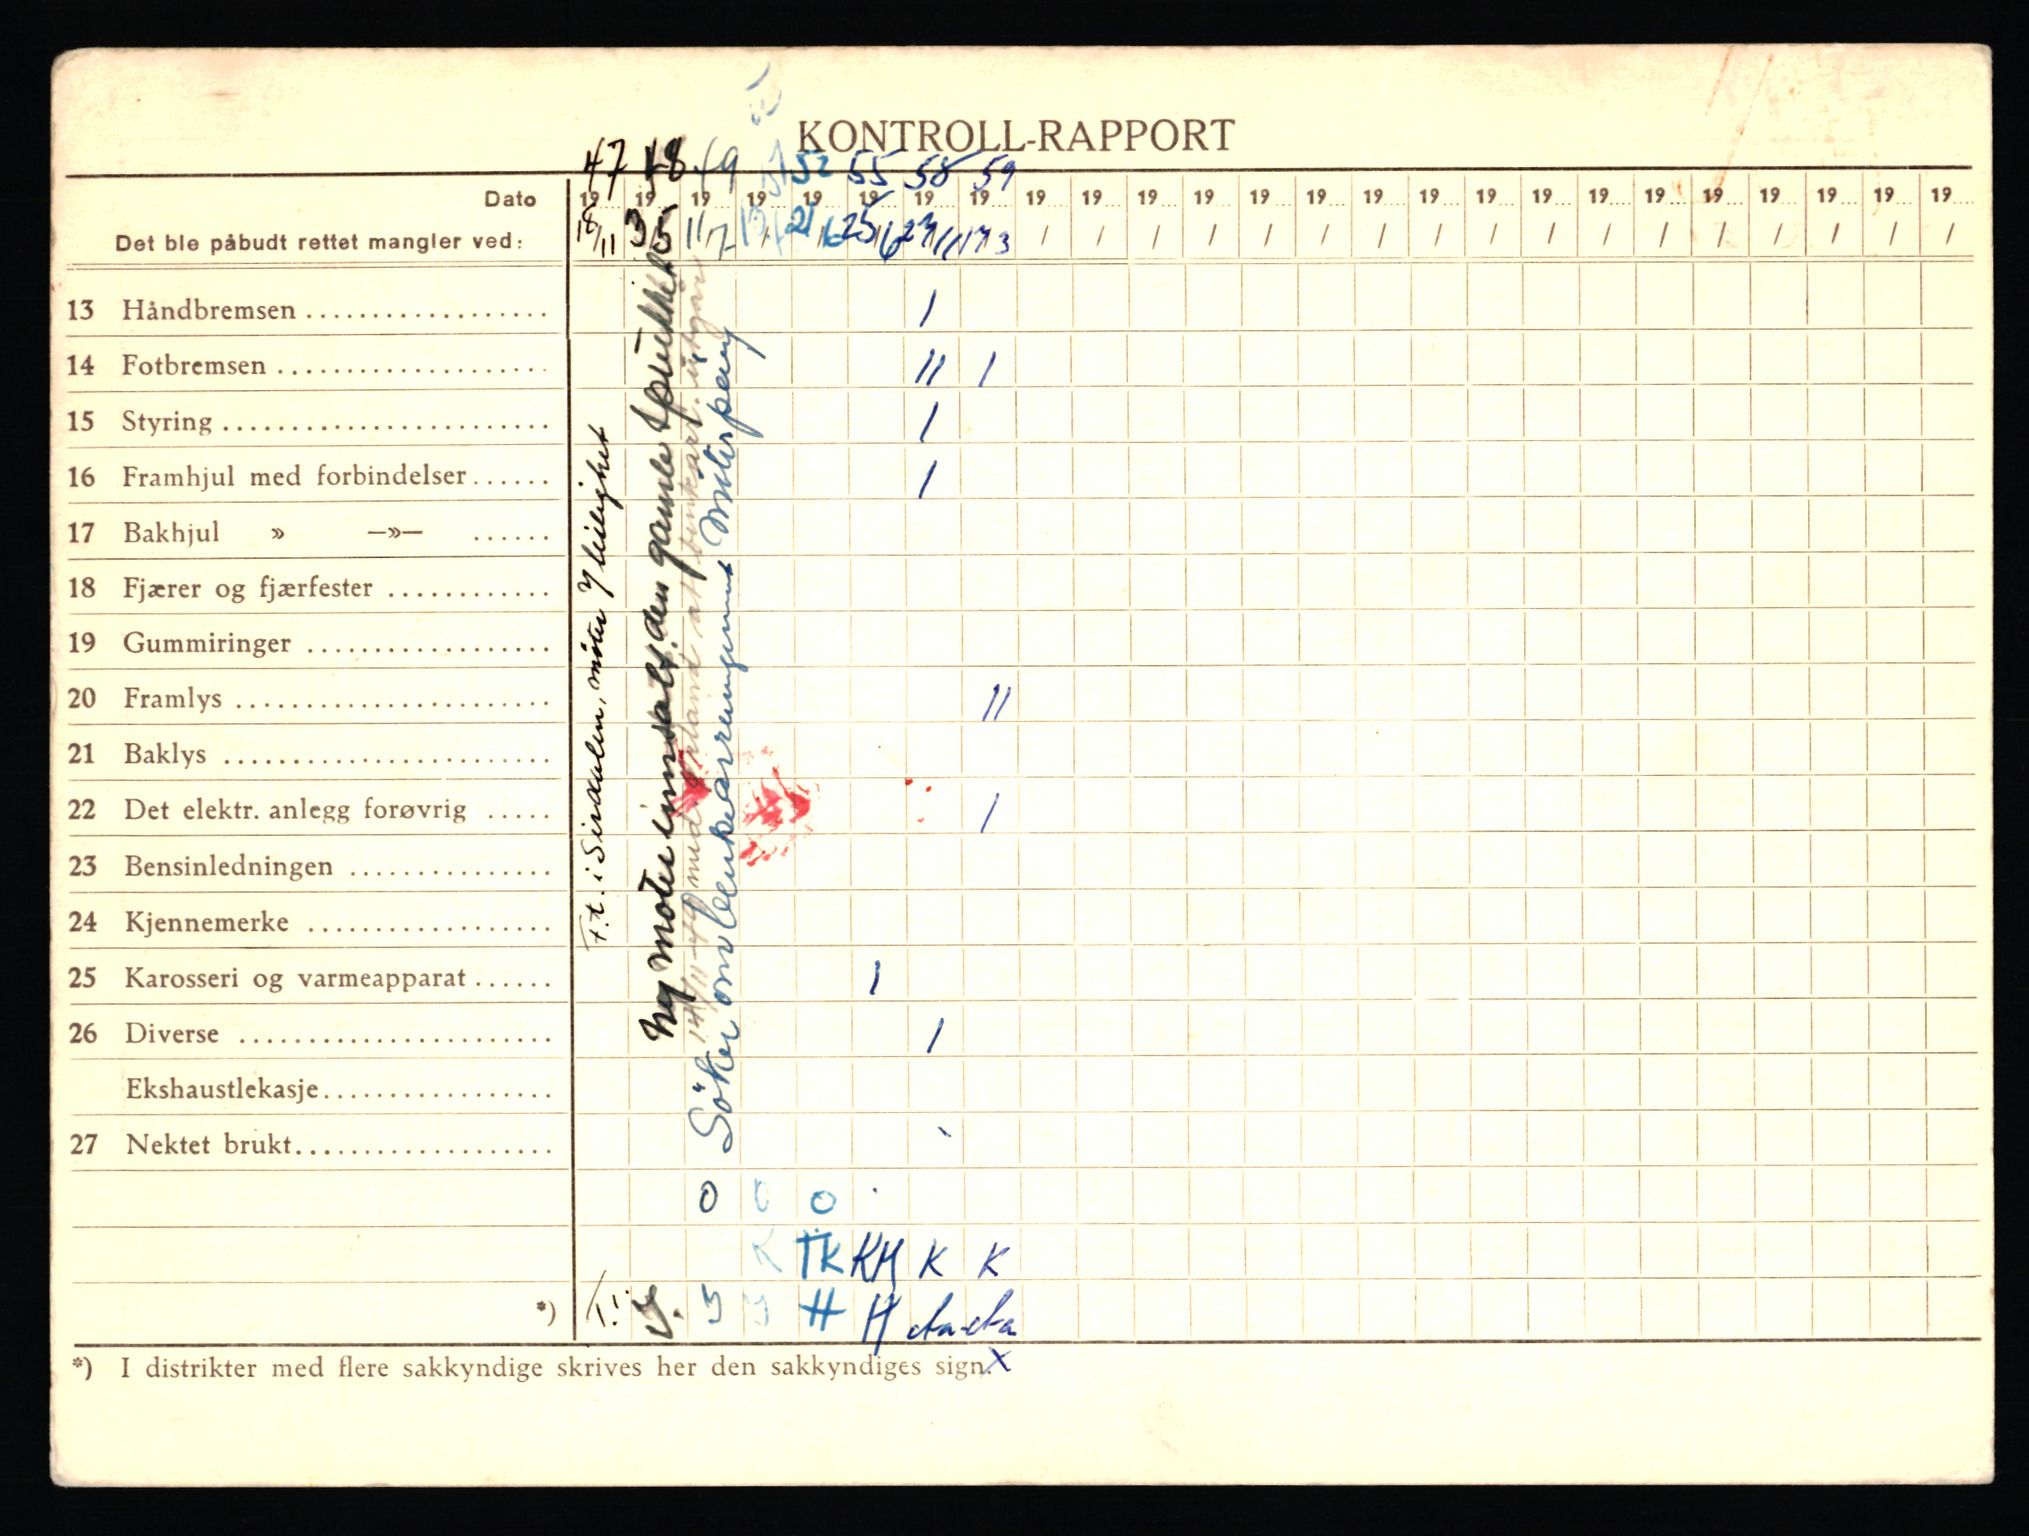 KONTROLL-RAPPORT
47 48 49 51 52 55 58 59
Dato 19 19 19 19 19 19 19 19 19 19 19 19 19 19 19 19 19 19 19 19 19 19 19 19 19
Det ble påbudt rettet mangler ved: 18/11 3/5 11/7 21/6 25/6 27/11 17/3 / / / / / / / / / / / / / / / / /
13 Håndbremsen /
14 Fotbremsen // /
15 Styring /
16 Framhjul med forbindelser /
17 Bakhjul » —»—
18 Fjærer og fjærfester
19 Gummiringer
20 Framlys //
21 Baklys
22 Det elektr. anlegg forøvrig /
23 Bensinledningen
24 Kjennemerke
25 Karosseri og varmeapparat /
26 Diverse /
Ekshaustlekasje
27 Nektet brukt
F.t. i Sirdalen, møter v leilighet
Ny motor innsatt. den gamle sprukket
14/11-49 med
Söker om benkearrangement
0 0 0
K TK KM K K
*) H H
*) I distrikter med flere sakkyndige skrives her den sakkyndiges sign. x